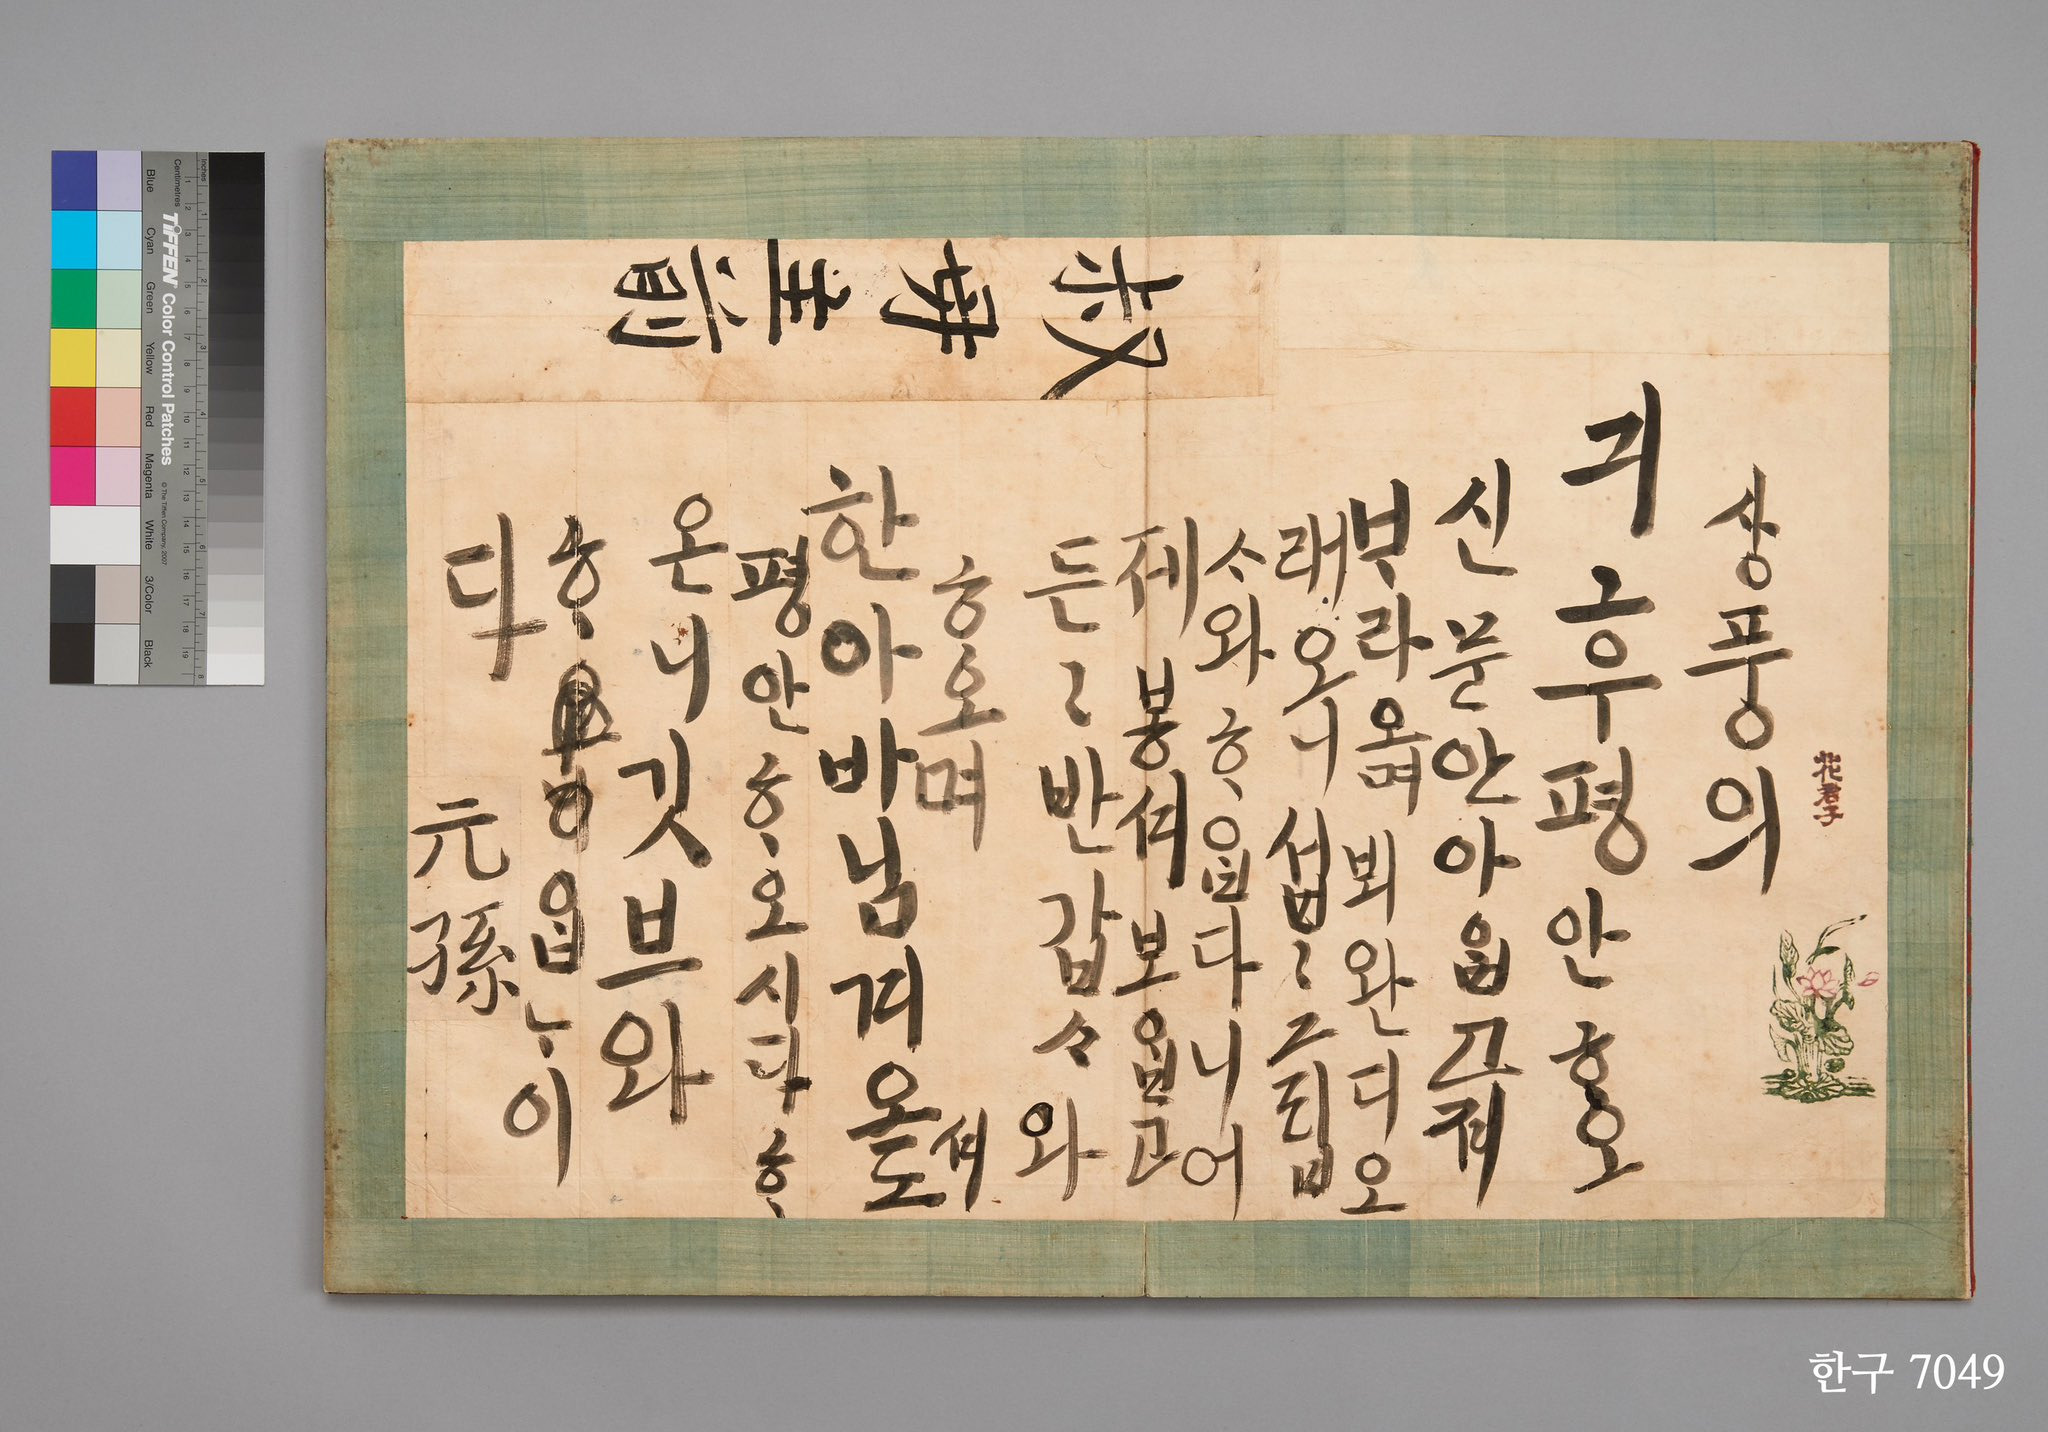 叔母主前
花君子
상풍의
긔후평안ᄒᆞ오
신문안아ᄋᆞᆸ고져
ᄇᆞ라오며뵈완디오
래오니섭〻그립
ᄉᆞ와ᄒᆞᄋᆞᆸ다니어
제봉셔보ᄋᆞᆸ고
든〻반갑ᄉᆞ와
ᄒᆞ오며
한아바님겨오셔도
평안ᄒᆞ오시다ᄒᆞ
온니깃브와
ᄒᆞᄋᆞᆸᄂᆞ이
다
元孫
TIFFEN Color Control Patches
© The Tiffen Company, 2007
Inches
Centimetres
Blue
Cyan
Green
Yellow
Red
Magenta
White
3/Color
Black
한구 7049